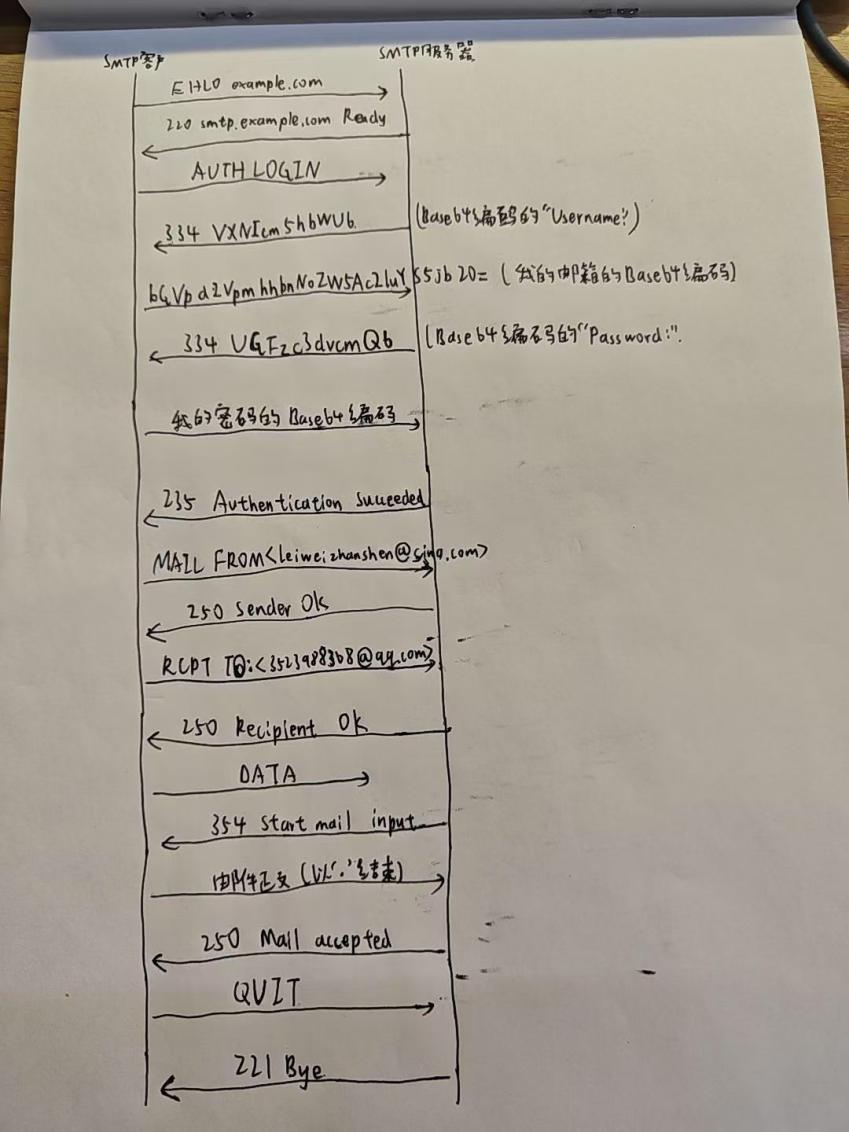 SMTP客户
SMTP服务器
EHLO example.com
220 smtp.example.com Ready
AUTH LOGIN
334 VXNlcm5hbWU6 (Base64编码的"Username:")
bGVpd2VpmhhbnNoZW5Ac2luYS5jb20= (我的邮箱的Base64编码)
334 UGFzc3dvcmQ6 (Base64编码的"Password:".
我的密码的Base64编码
235 Authentication Succeeded
MAIL FROM<leiweizhanshen@sina.com>
250 Sender OK
RCPT TO:<3523988368@qq.com>
250 Recipient OK
DATA
354 Start mail input
邮件正文(以"."结束)
250 Mail accepted
QUIT
221 Bye